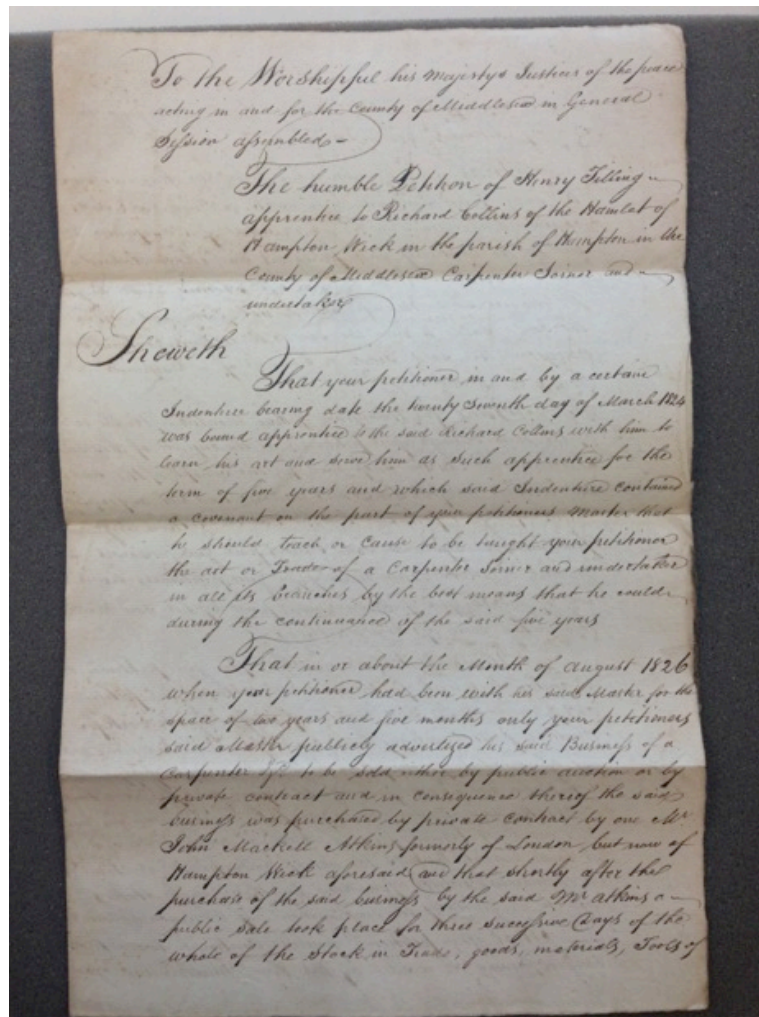 To the Worshipful his Majestys Justices of the peace
acting in and for the County of Middlesex in General
Session assembled -
The humble Petition of Henry Tilling
apprentice to Richard Collins of the Hamlet of
Hampton Wick in the parish of Hampton in the
County of Middlesex Carpenter Joiner and
undertaker
Sheweth
That your petitioner in and by a certain
Indenture bearing date the twenty seventh day of March 1824
was bound apprentice to the said Richard Collins with him to
learn his art and serve him as such apprentice for the
term of five years and which said Indenture contained
a covenant on the part of your petitioners Master that
he should teach or cause to be taught your petitioner
the art or Trade of a Carpenter Joiner and undertaker
in all its branches by the best means that he could
during the continuance of the said five years
That in or about the Month of August 1826
when your petitioner had been with his said Master for the
space of two years and five months only your petitioners
said Master publicly advertized his said Business of a
Carpenter &c to be sold either by public auction or by
private contract and in consequence thereof the said
business was purchased by private contract by one Mr
John Mackell Atkins formerly of London but now of
Hampton Wick aforesaid and that shortly after the
purchase of the said business by the said Mr Atkins a
public sale took place for three successive Days of the
whole of the Stock in Trade, goods, materials, Tools of